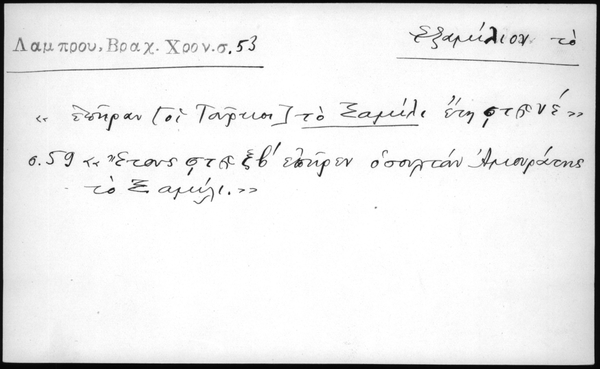 Λαμπρου, Βραχ. Χρον. σ. 53
Ἑξαμίλιον τὸ
« ἐπῆραν [οἱ Τοῦρκοι] τὸ Ξαμίλι ἔτη ϛτλνέ »
σ. 59 « Ἔτους ϛτλξβʹ ἐπῆρεν ὁ σουλτάν Ἀμουράτης
τὸ Ξαμίλι. »